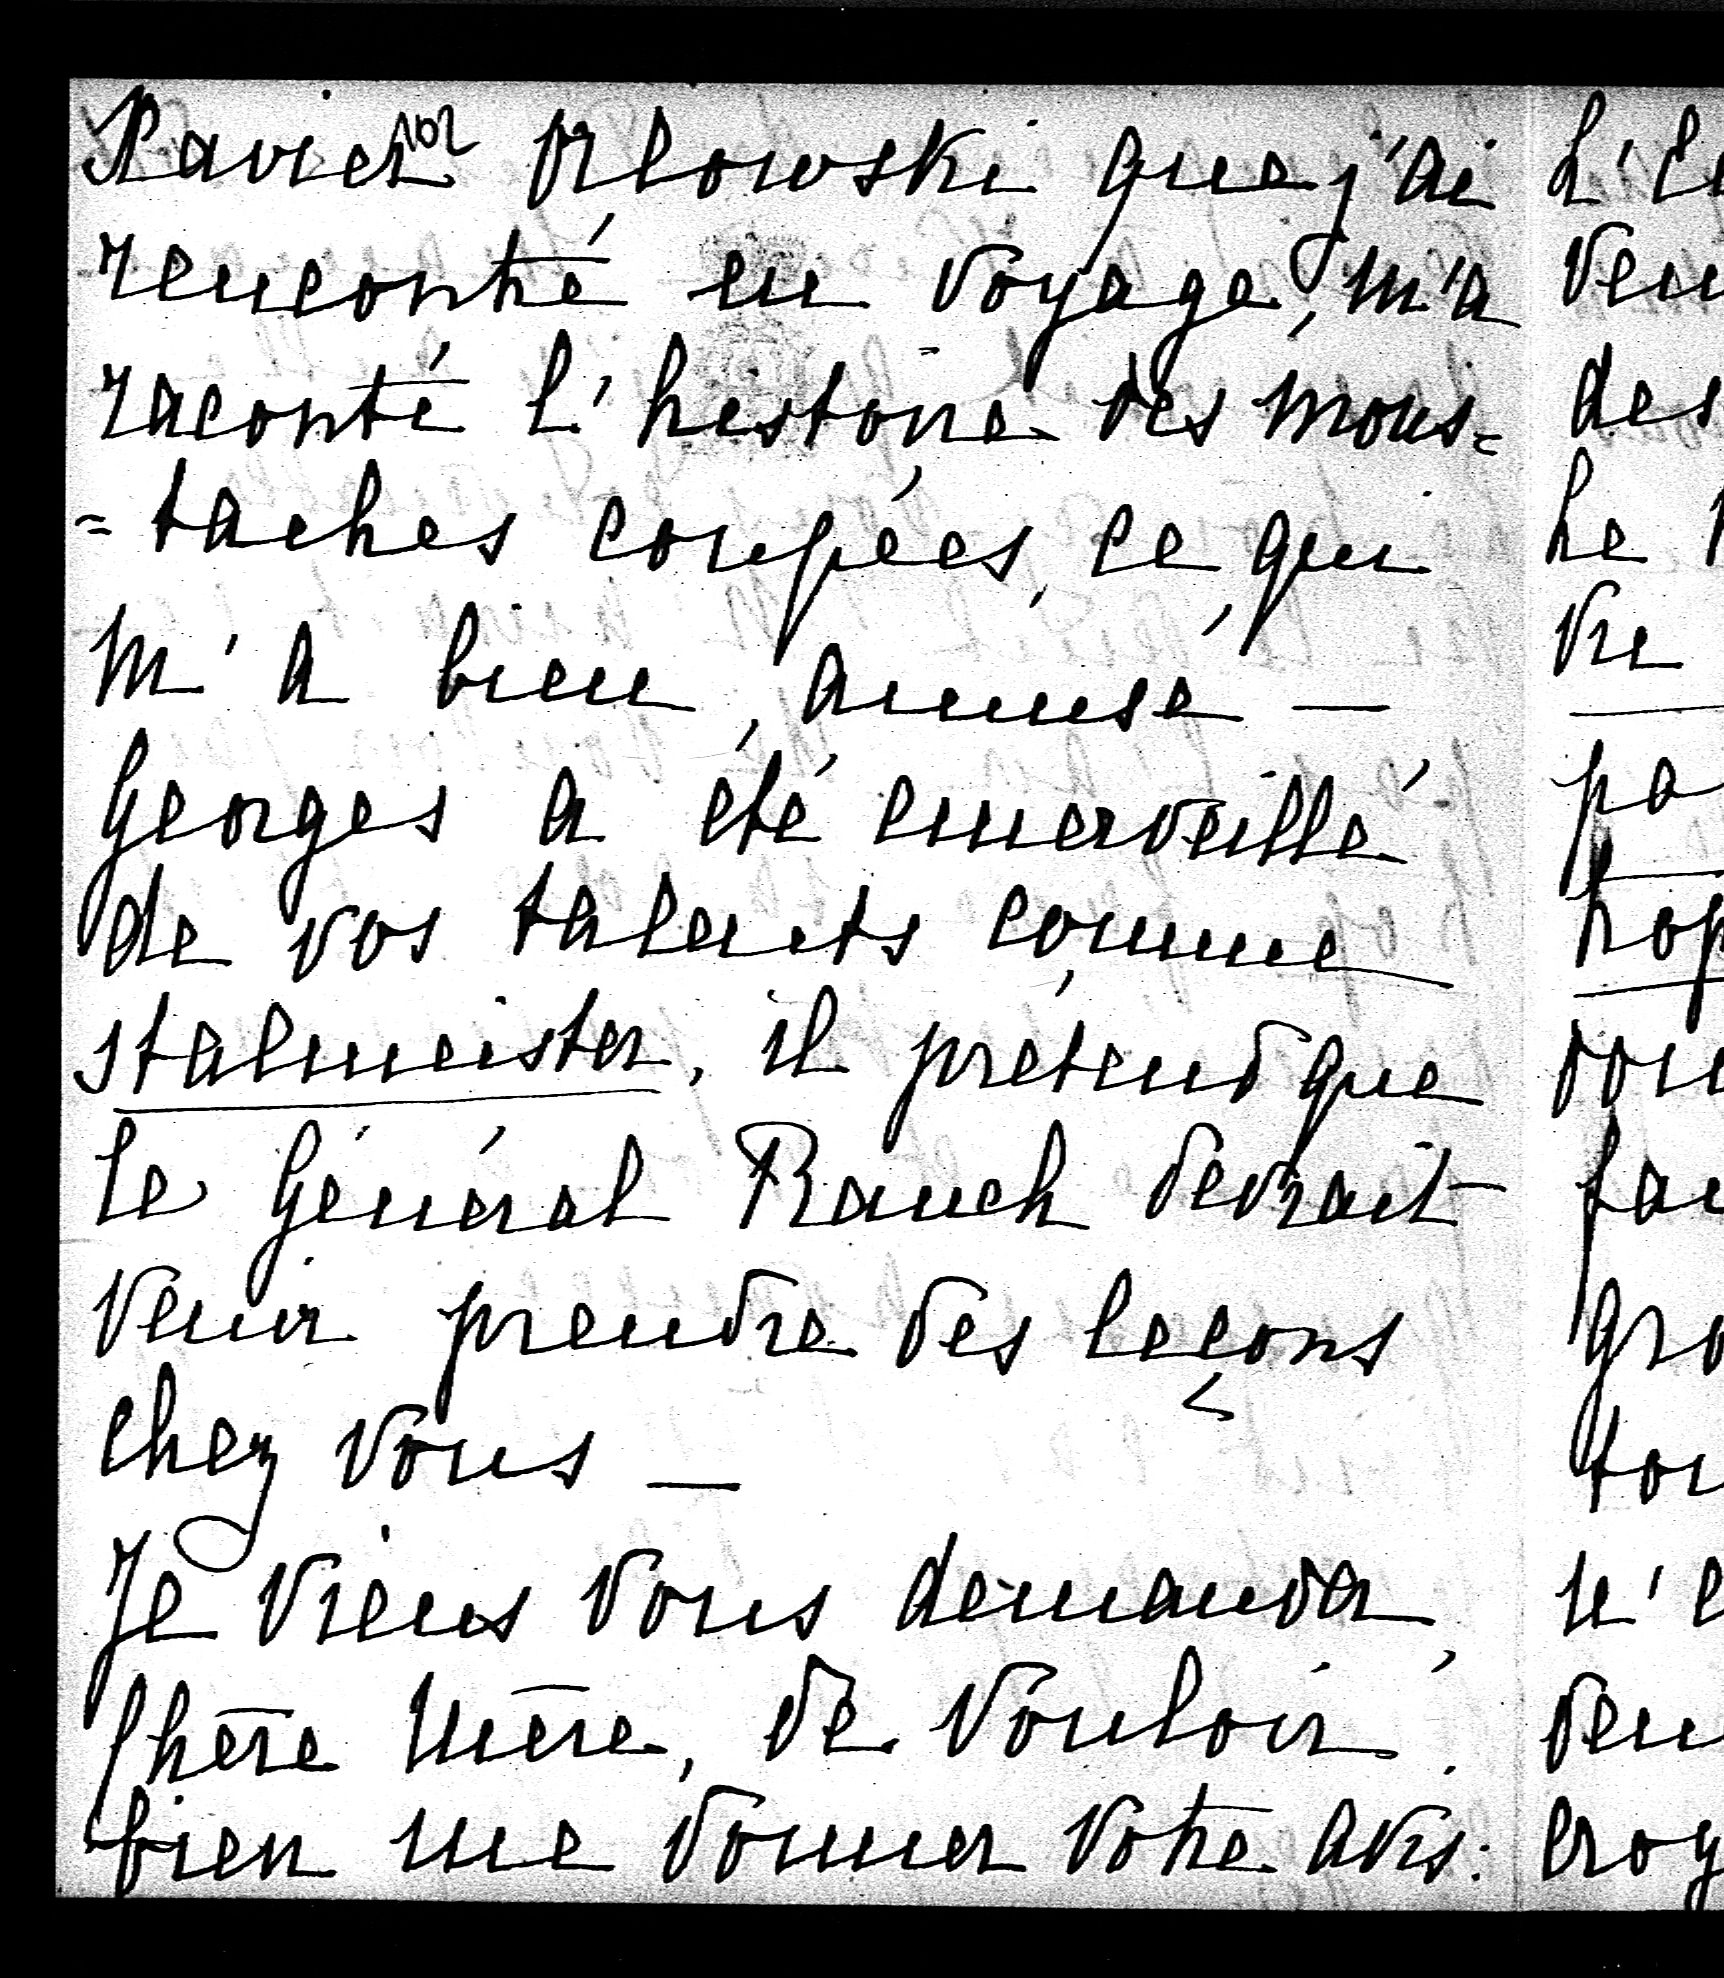 Xavier Orlowski que j'ai
rencontré en voyage, m'a
raconté l'histoire des mous=
=taches coupées, ce qui
m'a bien amusé —
Georges a été émerveillé
de vos talents comme
stalmeister, il prétend que
le Général Rauch devrait
venir prendre des leçons
chez vous —
Je viens vous demander,
chère Mère, de vouloir
bien me donner votre avis:
L'
des
Le
vre
pa
n'e
croy